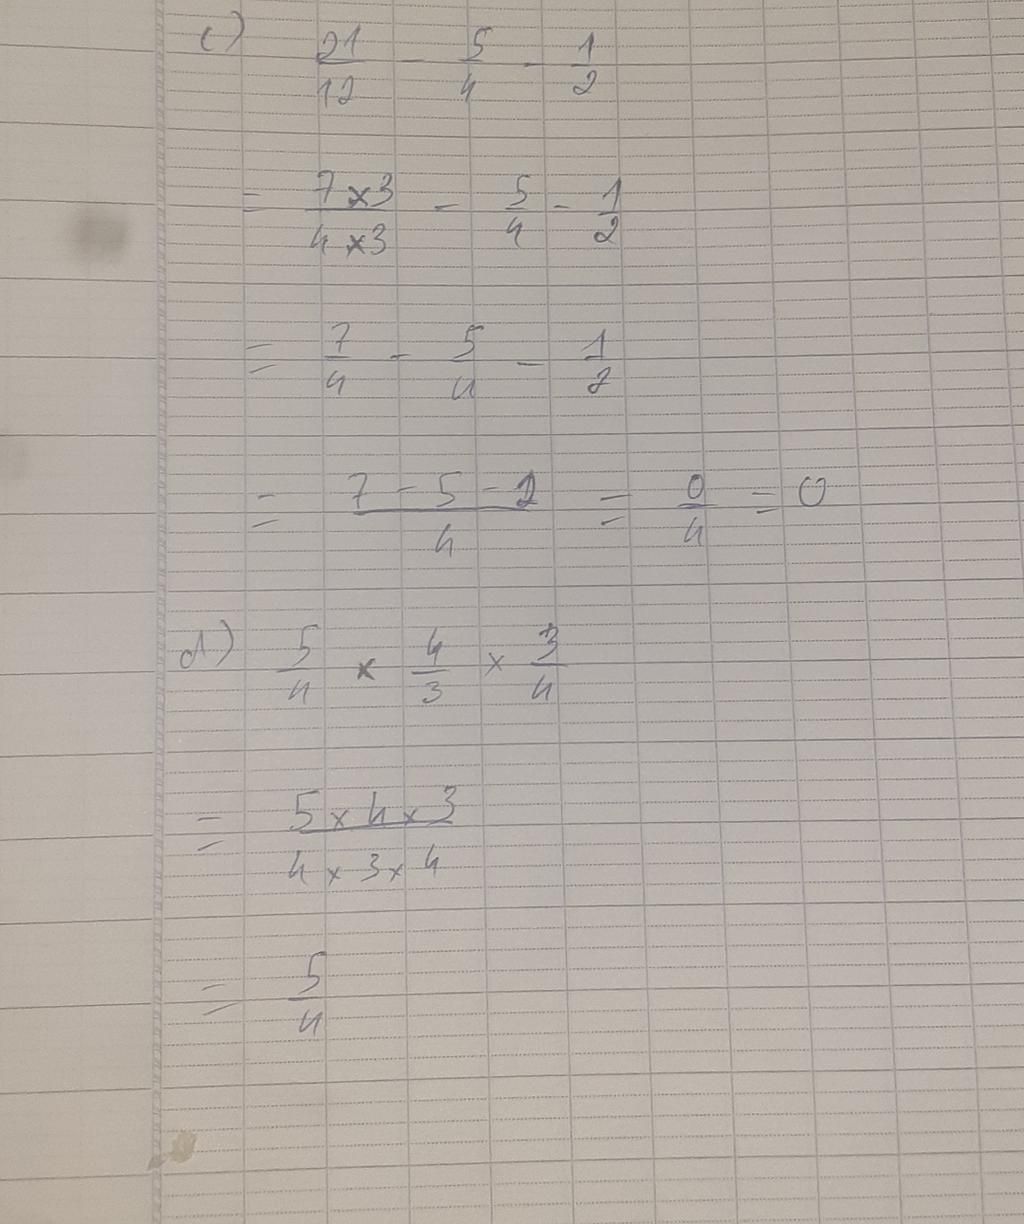 c) 21/12 - 5/4 - 1/2
= 7 x 3/4 x 3 - 5/4 - 1/2
= 7/4 - 5/4 - 1/2
= 7 - 5 - 2/4 = 0/4 = 0
d) 5/4 x 4/3 x 3/4
= 5 x 4 x 3/4 x 3 x 4
= 5/4